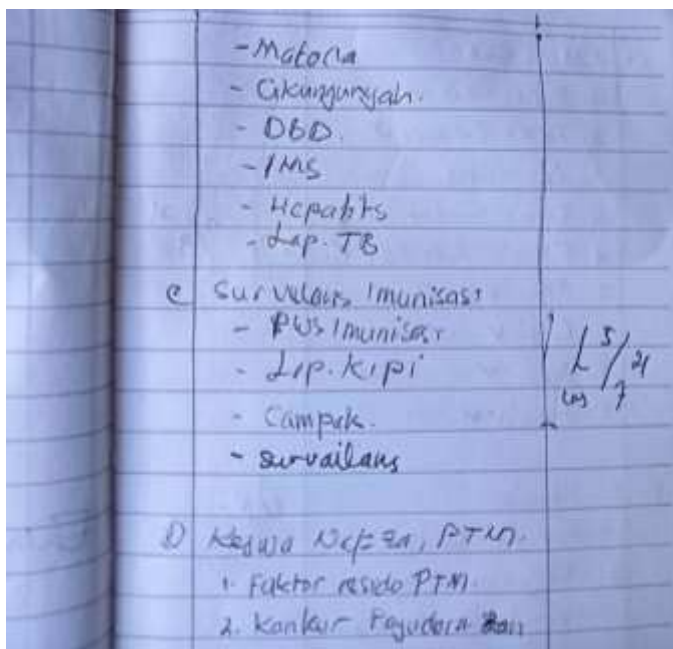 - Malaria
- Cikungunyah.
- DBD.
- IMS
- Hepatits
- Lap. TB
C Survelans Imunisasi
- PWS Imunisasi
- Lap. KIPI
- Campak.
- Survailans
D Keswa Napza, PTM.
1. Faktor resido PTM.
2. Kankur Payudara